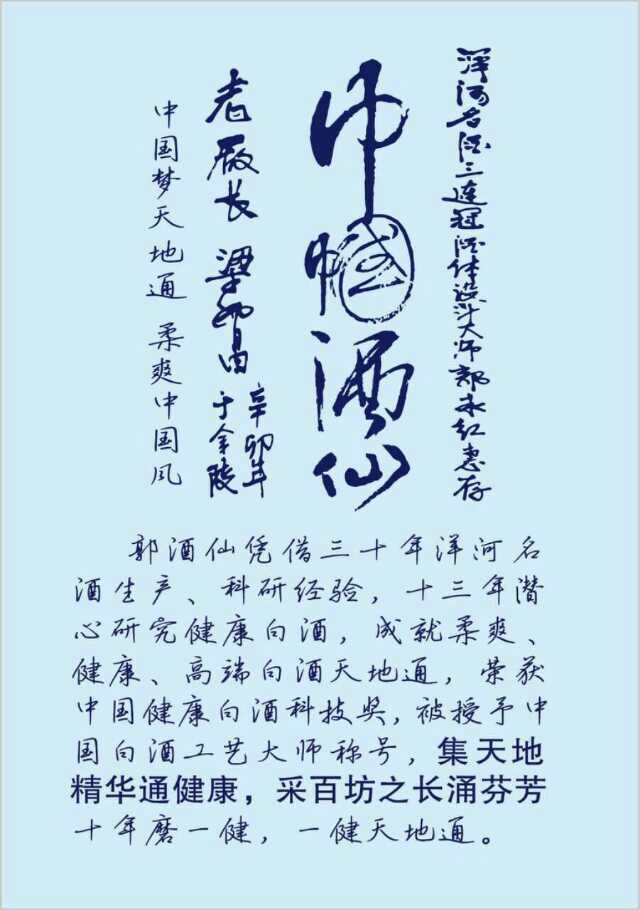 洋河名酒三连冠酒体设计大师郭永红惠存
巾帼酒仙
老厰长 梁
辛卯年
于金陵
中国梦天地通 柔爽中国风
郭酒仙凭借三十年洋河名
酒生产、科研经验，十三年潜
心研究健康白酒，成就柔爽、
健康、高端白酒天地通，荣获
中国健康白酒科技奖，被授予中
国白酒工艺大师称号，集天地
精华通健康，采百坊之长涌芬芳
十年磨一健，一健天地通。